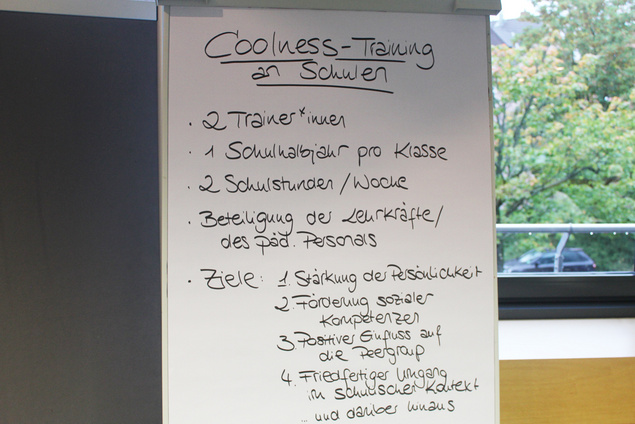 Coolness-Training
an Schulen
• 2 Trainer*innen
• 1 Schulhalbjahr pro Klasse
• 2 Schulstunden/Woche
• Beteiligung der Lehrkräfte/
des päd. Personals
• Ziele: 1. Stärkung der Persönlichkeit
2. Förderung sozialer
Kompetenzen
3. Positiver Einfluss auf
die Peergroup
4. Friedfertiger Umgang
im schulischen Kontext
... und darüber hinaus